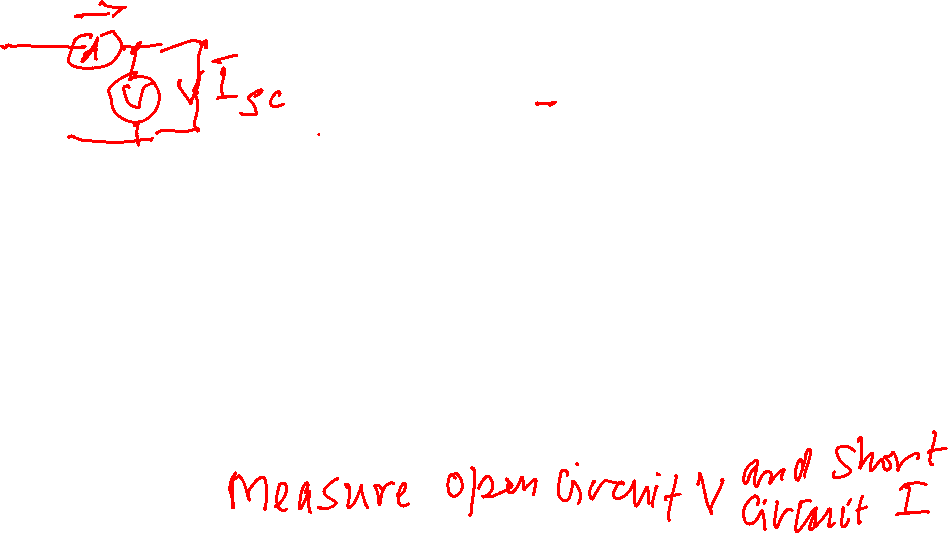 A
V
I sc
Measure open circuit V and short
circuit I